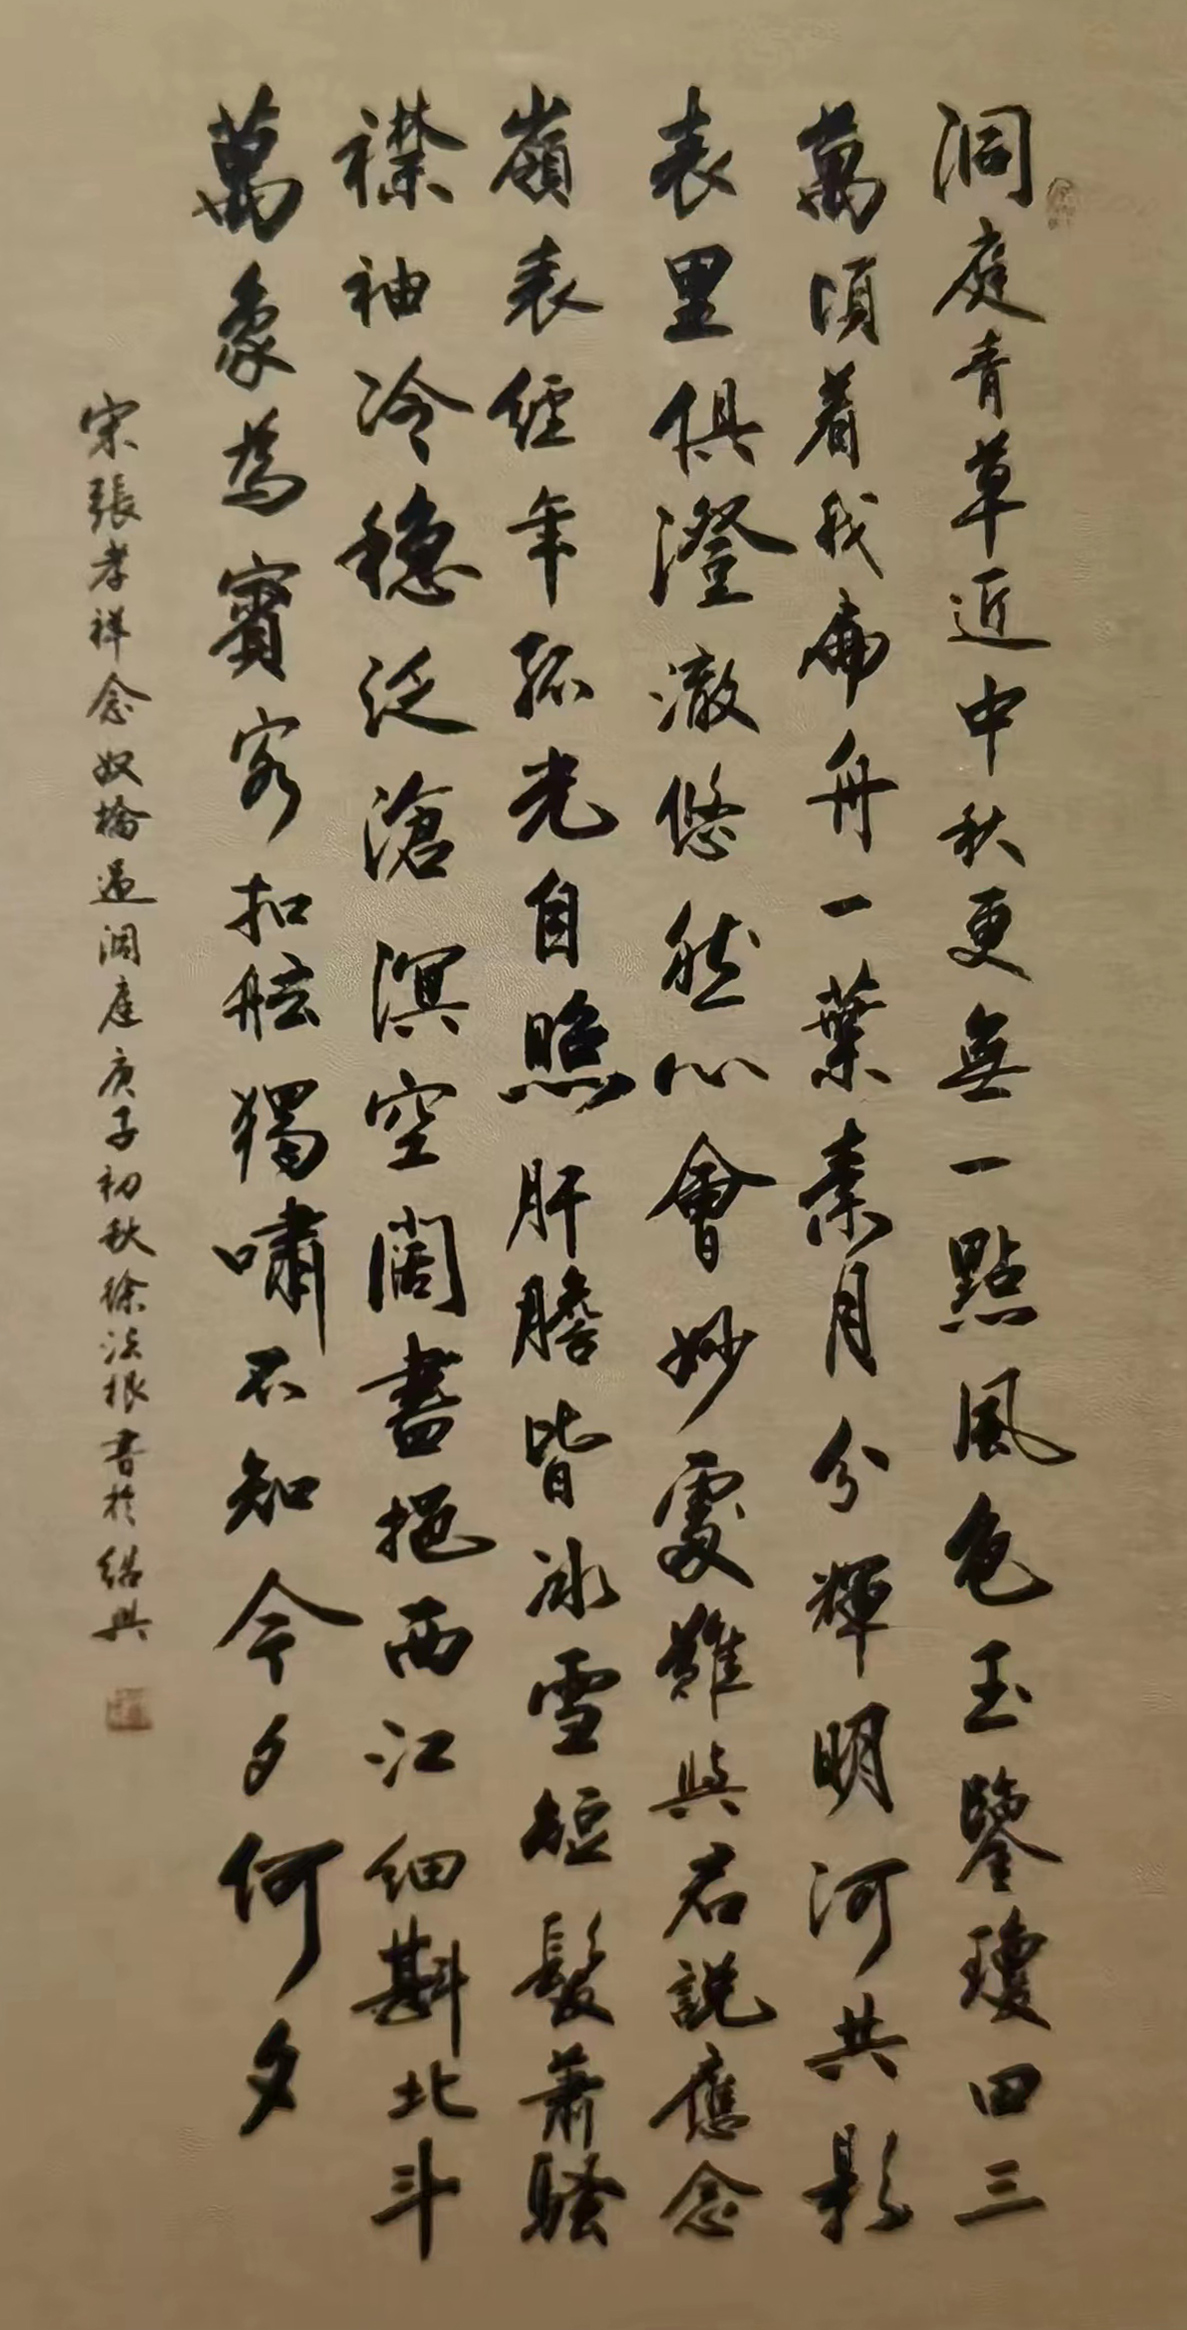 洞庭青草近中秋更無一點風色玉鑒瓊田三
萬頃着我扁舟一葉素月分輝明河共影
表里俱澄澈悠然心會妙處難與君説應念
嶺表經年孤光自照肝膽皆冰雪短髮蕭騷
襟袖冷穩泛滄溟空闊盡挹西江細斟北斗
萬象爲賓客扣舷獨嘯不知今夕何夕
宋張孝祥念奴橋過洞庭庚子初秋徐法根書於紹興